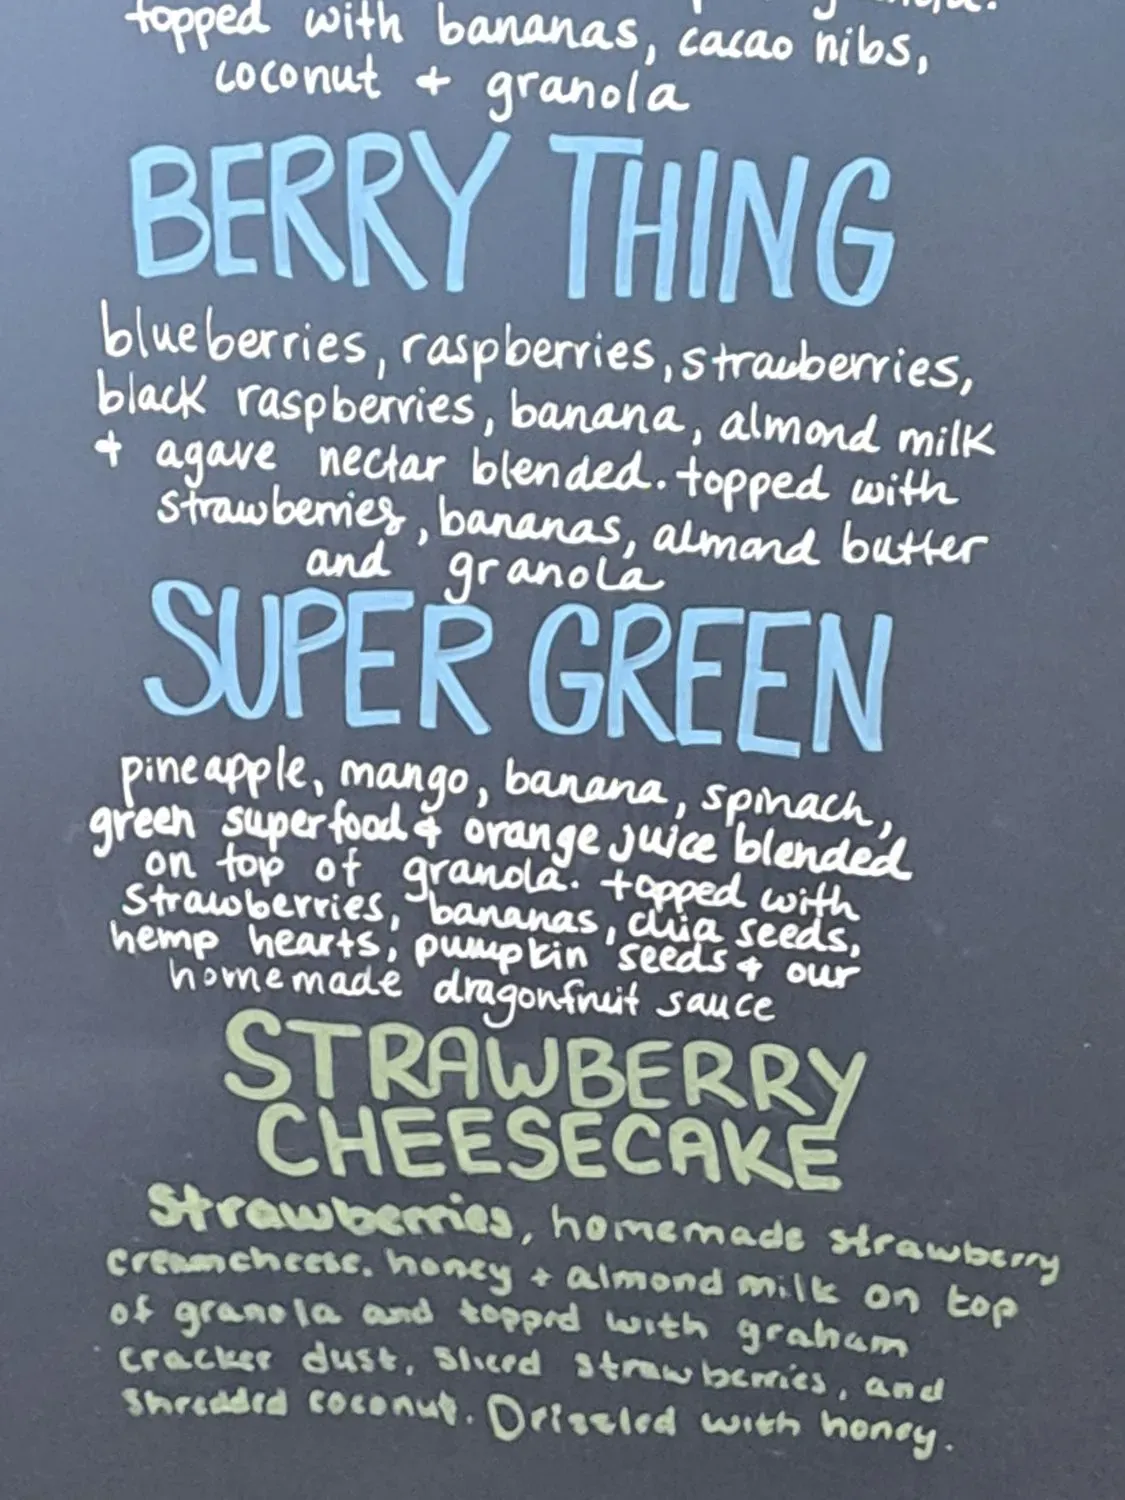 topped with bananas, cacao nibs,
coconut + granola
BERRY THING
blueberries, raspberries, strawberries,
black raspberries, banana, almond milk
+ agave nectar blended. topped with
strawberries, bananas, almond butter
and granola
SUPER GREEN
pineapple, mango, banana, spinach,
green superfood + orange juice blended
on top of granola. topped with
strawberries, bananas, chia seeds,
hemp hearts, pumpkin seeds + our
homemade dragonfruit sauce
STRAWBERRY
CHEESECAKE
Strawberries, homemade strawberry
creamcheese, honey + almond milk on top
of granola and topped with graham
cracker dust, sliced strawberries, and
shredded coconut. Drizzled with honey.